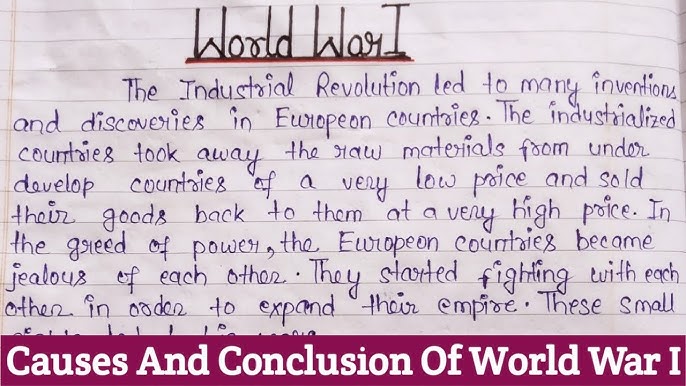 World War I
The Industrial Revolution led to many inventions
and discoveries in European countries. The industrialized
countries took away the raw materials from under
develop countries of a very low price and sold
their goods back to them at a very high price. In
the greed of power, the European countries became
jealous of each other. They started fighting with each
other in order to expand their empire. These small
Causes And Conclusion Of World War I